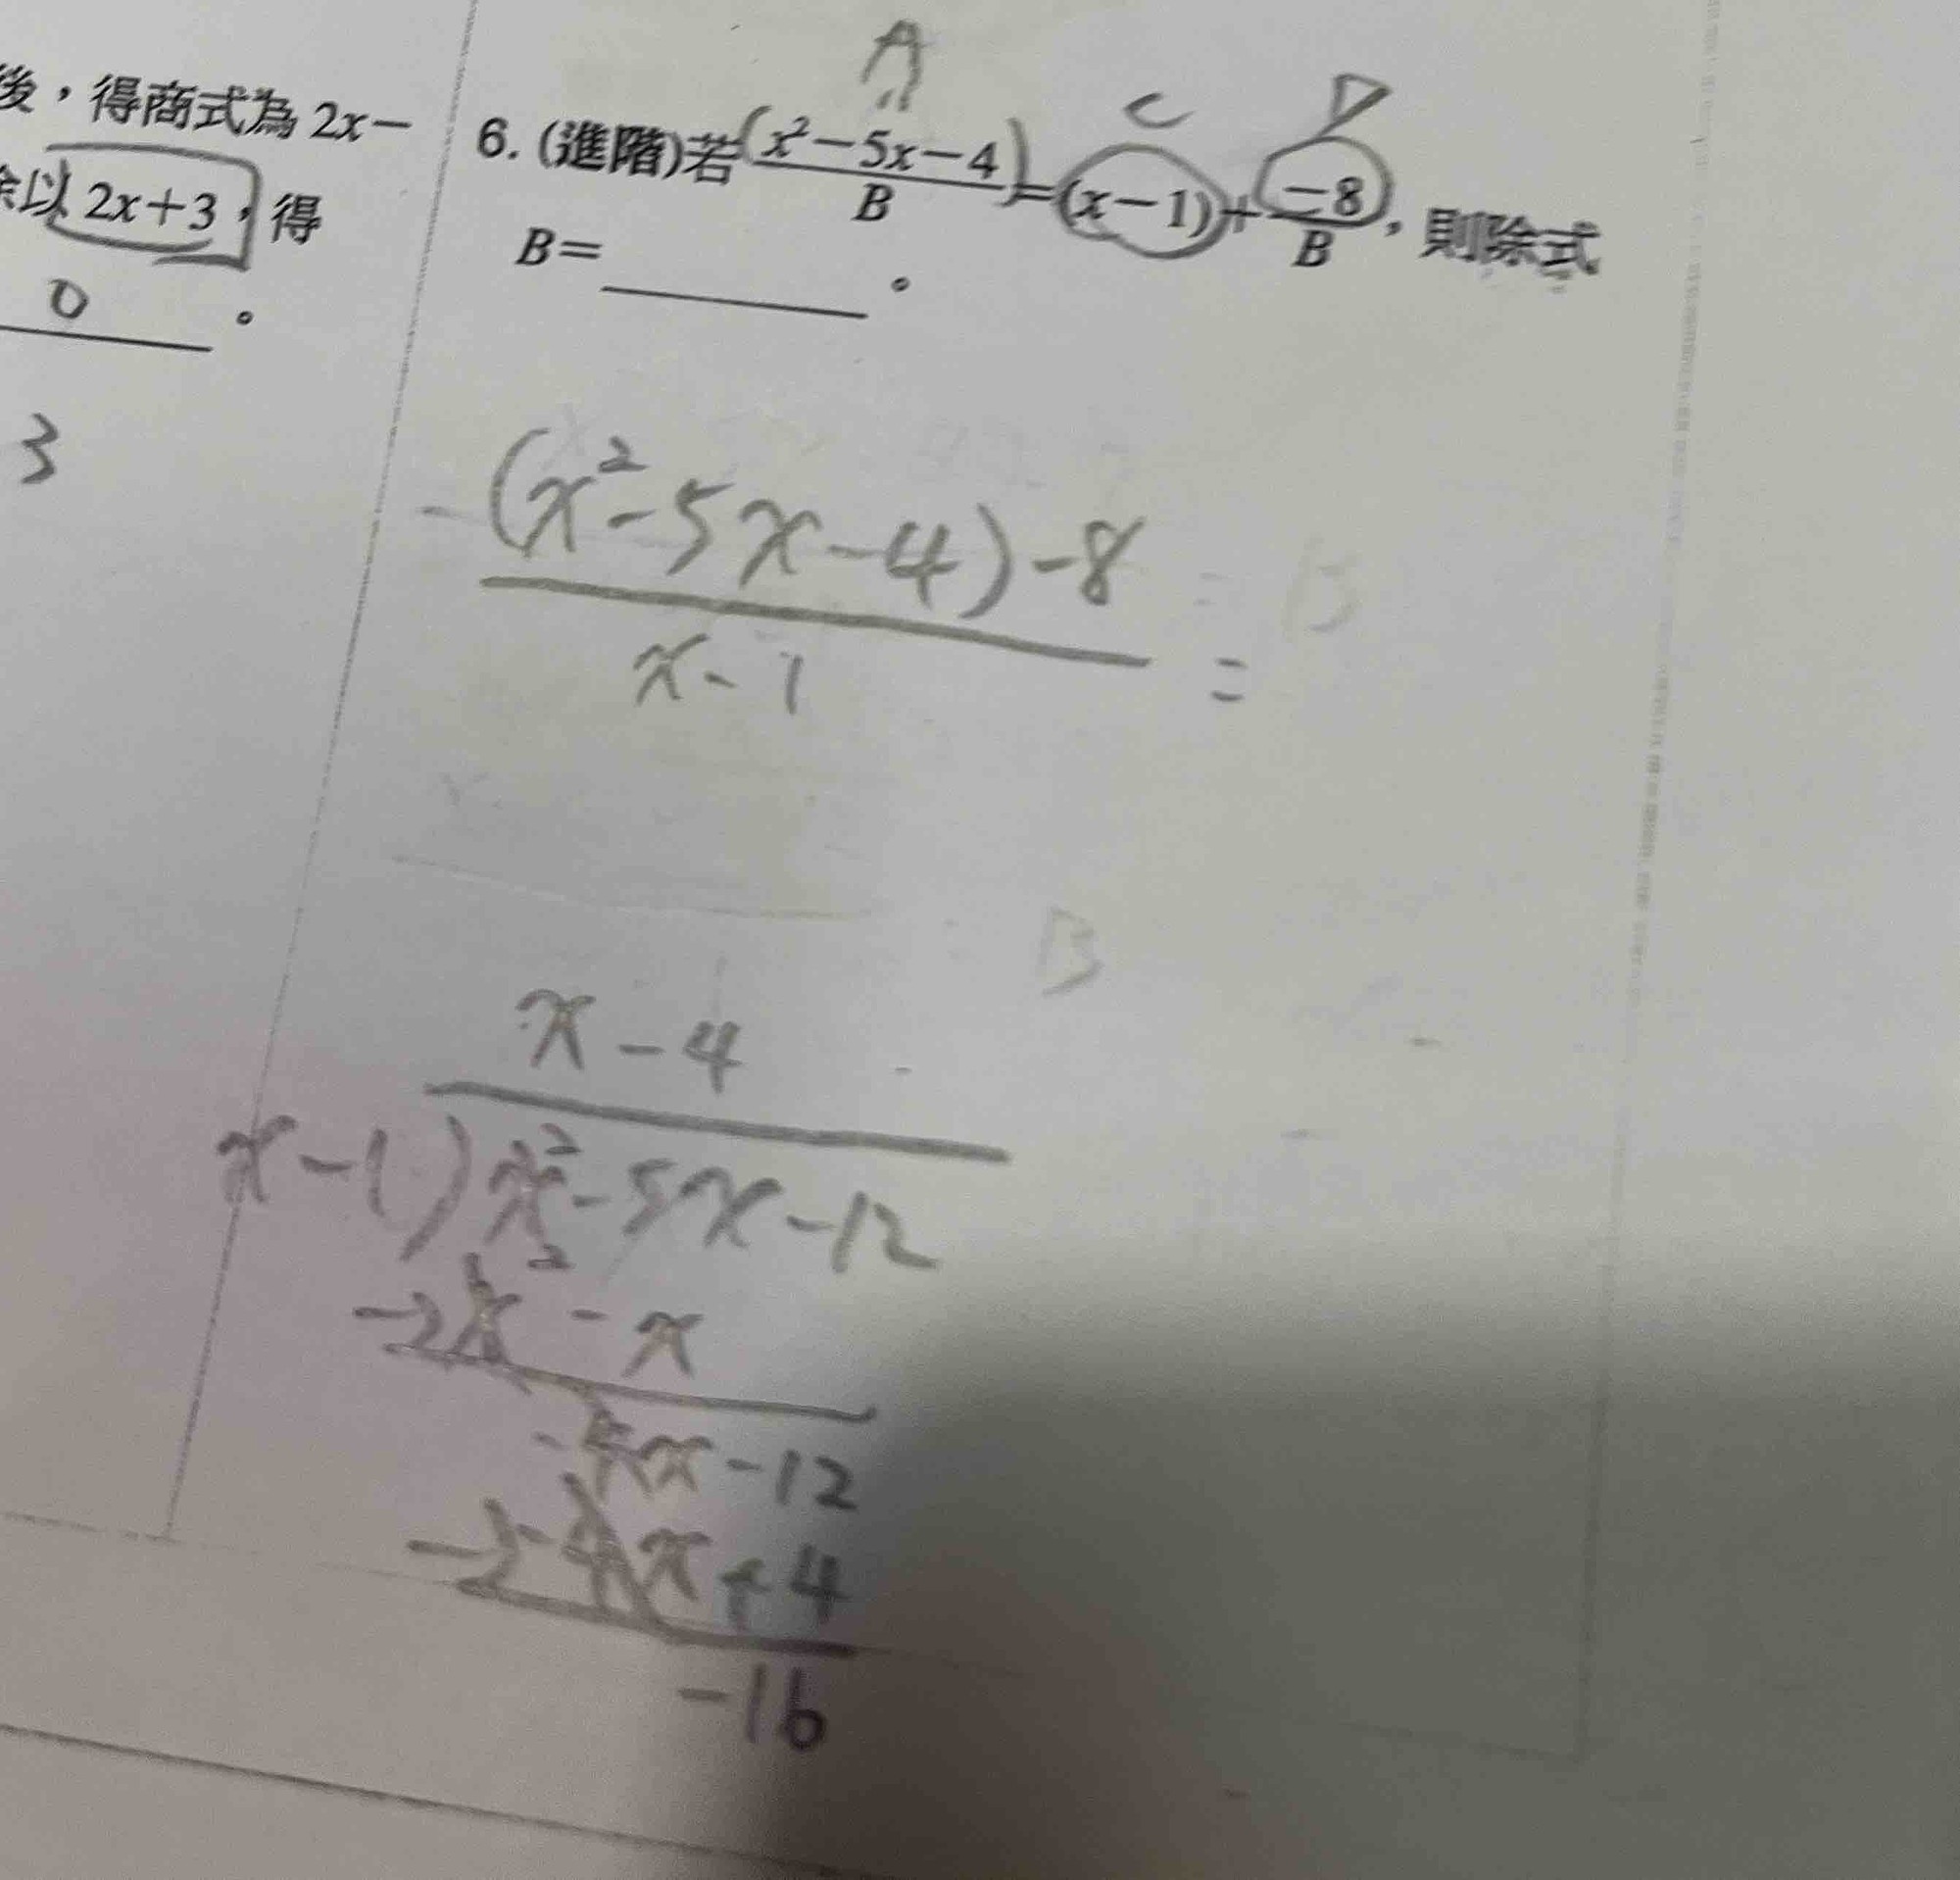 後，得商式為 2x−
余以 2x+3，得
0。
3
A
C
D
6. (進階)若 (x²−5x−4)/B = (x−1) + −8/B，則除式
B=＿＿＿。
−(x²−5x−4)−8
x−1
=
B
x−4
x−1)x²−5x−12
x²−x
−4x−12
−4x+4
−16